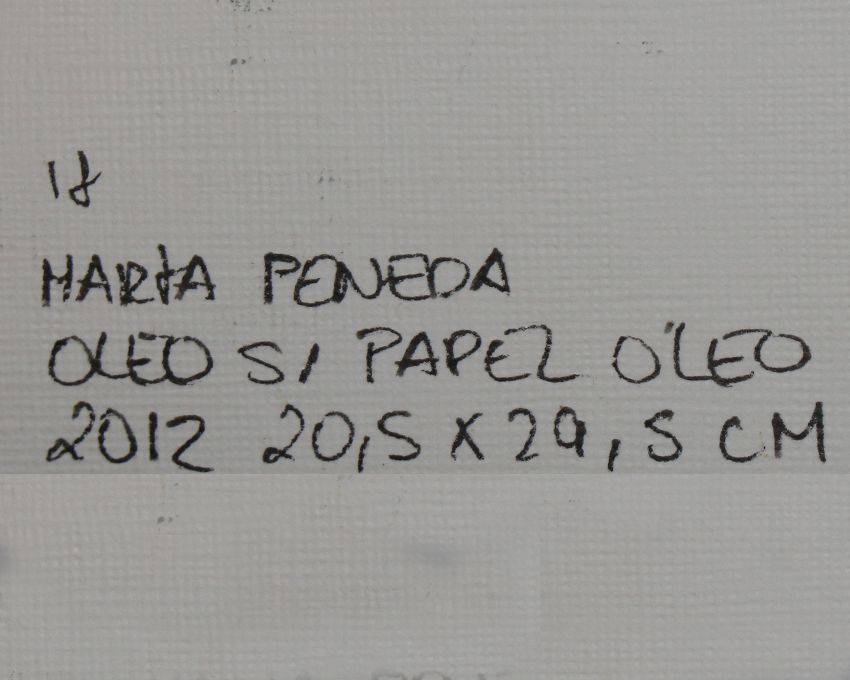 MARTA PENEDA
OLEO S/ PAPEL ÓLEO
2012 20,5 X 29,5 CM